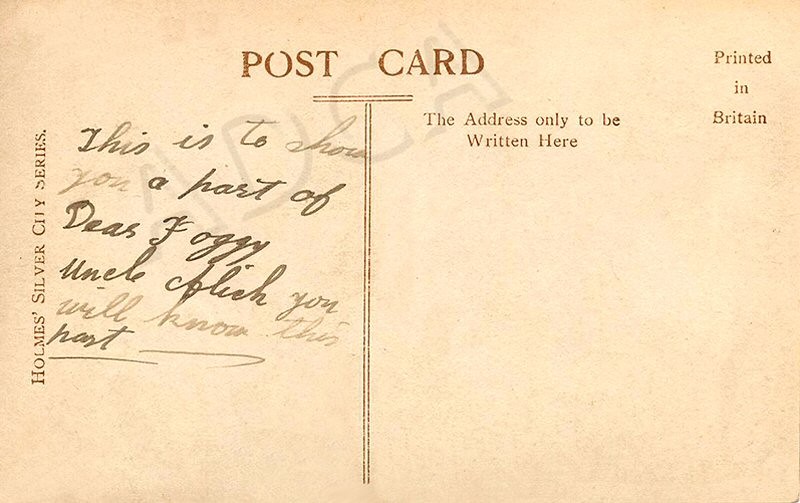 POST CARD
Printed
in
Britain
The Address only to be
Written Here
HOLMES' SILVER CITY SERIES.
This is to show
you a part of
Dear Foggy
Uncle Alick you
will know this
part
ADCA